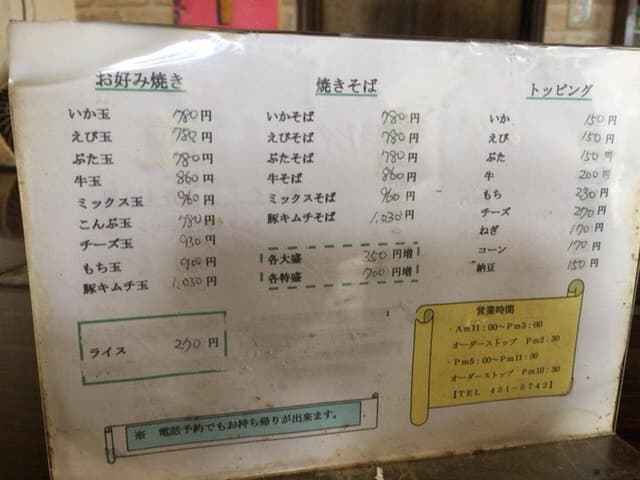 お好み焼き
いか玉 780円
えび玉 780円
ぶた玉 780円
牛玉 860円
ミックス玉 960円
こんぶ玉 780円
チーズ玉 930円
もち玉 900円
豚キムチ玉 1,030円
ライス 270円
焼きそば
いかそば 780円
えびそば 780円
ぶたそば 780円
牛そば 860円
ミックスそば 960円
豚キムチそば 1,030円
各大盛 350円増
各特盛 700円増
トッピング
いか 150円
えび 150円
ぶた 150円
牛 200円
もち 230円
チーズ 270円
ねぎ 170円
コーン 170円
納豆 150円
営業時間
・Am11：00～Pm3：00
オーダーストップ Pm2：30
・Pm5：00～Pm11：00
オーダーストップ Pm10：30
【TEL 451-5742】
※ 電話予約でもお持ち帰りが出来ます。